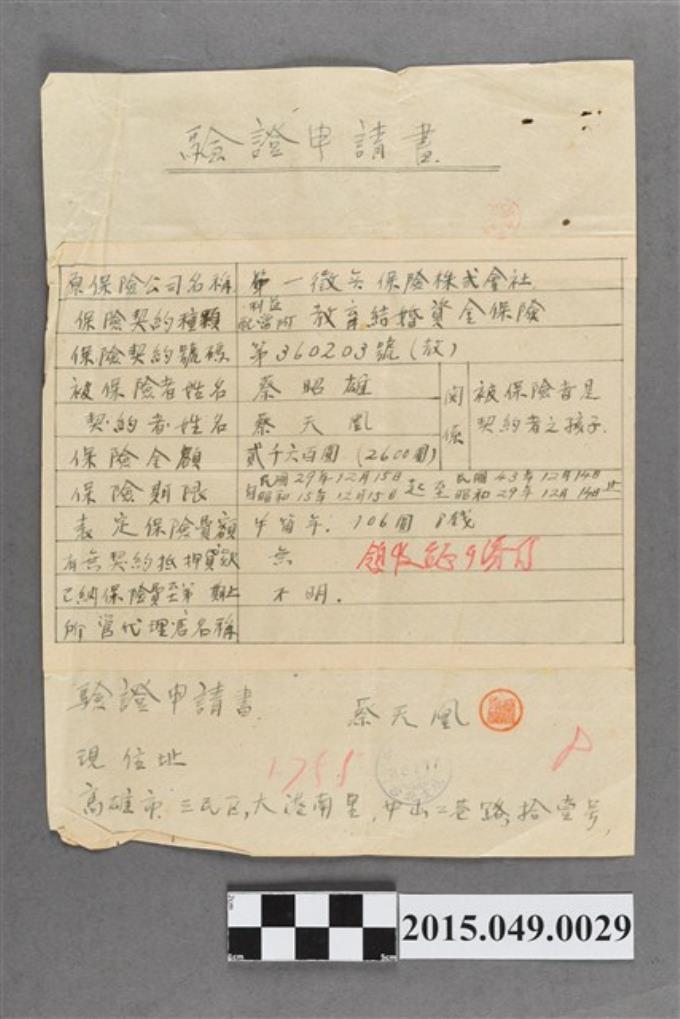 驗證申請書
原保險公司名稱 第一徵兵保險株式會社
保險契約種類 利益配當附 教育結婚資金保險
保險契約號碼 第360203號(教)
被保險者姓名 蔡昭雄
契約者姓名 蔡天凰
関係 被保險者是契約者之孩子.
保險金額 貳千六百圓(2600圓)
保險期限 自民國29年12月15日 昭和15年12月15日 起至 民國43年12月14日 昭和29年12月14日止
表定保險費額 年. 106圓 8錢
有無契約抵押貸款 無
已納保險費至第 期止 不明.
所管代理店名稱
驗證申請書 蔡天凰
現住址 1755
高雄市三民区,大港南里,二巷路,拾壹号,
2015.049.0029
5cm